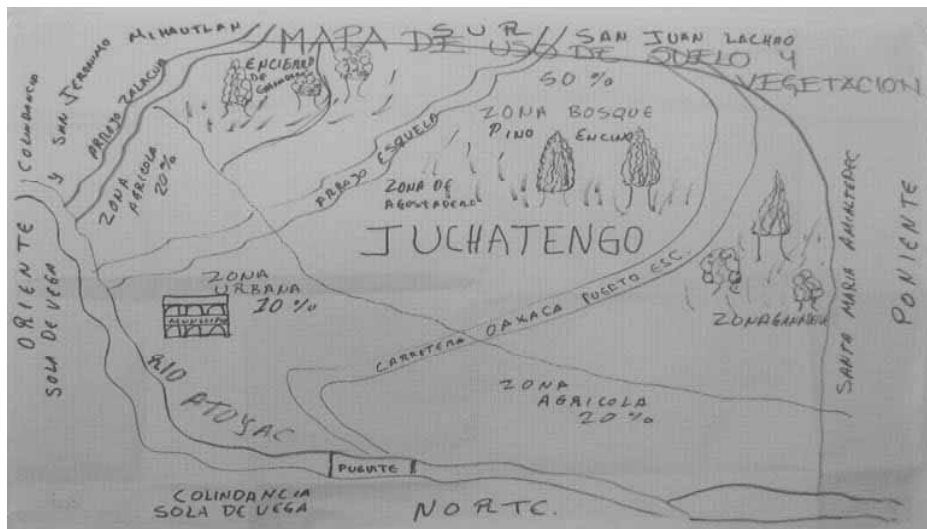 MAPA DE USO DE SUELO Y
VEGETACION
SUR
SAN JUAN LACHAO
COLINDANCIA
Y SAN JERONIMO MIHAUTLAN
ARROJO ZALACUA
ENCIERRO
DE
50 %
ZONA BOSQUE
PINO ENCINO
ZONA
AGRICOLA
20%
ARROJO ESQUELA
ZONA DE
AGOSTADERO
JUCHATENGO
ORIENTE
SOLA DE VEGA
ZONA
URBANA
10 %
MUNICIPIO
CARRETERA OAXACA PUERTO ESC.
ZONAGANADERA
SANTA MARIA AMIALTEPEC
PONIENTE
RIO ATOYAC
ZONA
AGRICOLA
20 %
PUENTE
COLINDANCIA
SOLA DE VEGA
NORTE.